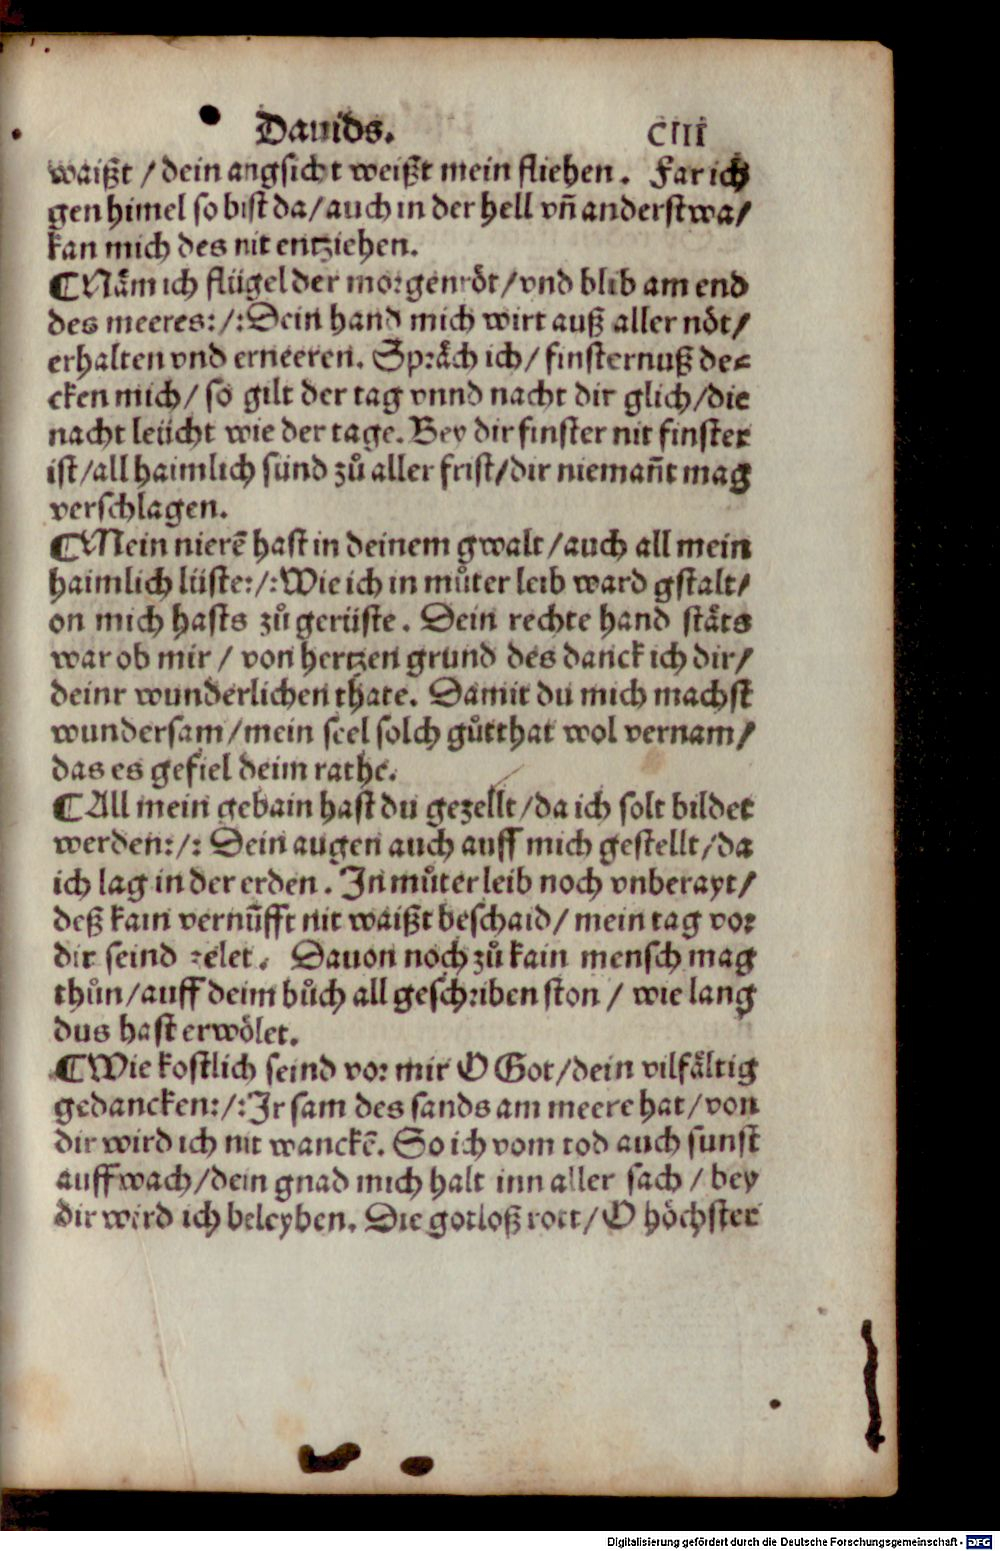 Dauids. CIII
waißt / dein angsicht weißt mein fliehen. Far ich
gen himel so bist da / auch in der hell vñ anderstwa /
kan mich des nit entziehen.
¶ Näm ich flügel der morgenröt / vnd blib am end
des meeres: /: Dein hand mich wirt auß aller nöt /
erhalten vnd erneeren. Spräch ich / finsternuß de⸗
cken mich / so gilt der tag vnnd nacht dir glich / die
nacht leücht wie der tage. Bey dir finster nit finster
ist / all haimlich sünd zů aller frist / dir niemañt mag
verschlagen.
¶ Mein nierē hast in deinem gwalt / auch all mein
haimlich lüste: /: Wie ich in můter leib ward gstalt /
on mich hasts zů gerüste. Dein rechte hand stäts
war ob mir / von hertzen grund des danck ich dir /
deinr wunderlichen thate. Damit du mich machst
wundersam / mein seel solch gůtthat wol vernam /
das es gefiel deim rathe.
¶ All mein gebain hast du gezellt / da ich solt bildet
werden: /: Dein augen auch auff mich gestellt / da
ich lag in der erden. In můter leib noch vnberayt /
deß kain vernūfft nit waißt beschaid / mein tag vor
dir seind zelet. Dauon noch zů kain mensch mag
thůn / auff deim bůch all geschriben ston / wie lang
dus hast erwölet.
¶ Wie kostlich seind vor mir O Got / dein vilfältig
gedancken: /: Ir sam des sands am meere hat / von
dir wird ich nit wanckē. So ich vom tod auch sunst
auff wach / dein gnad mich halt inn aller sach / bey
dir wird ich beleyben. Die gotloß rott / O höchster
Digitalisierung gefördert durch die Deutsche Forschungsgemeinschaft - DFG